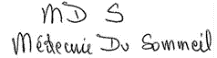 MD S
Médecine Du Sommeil